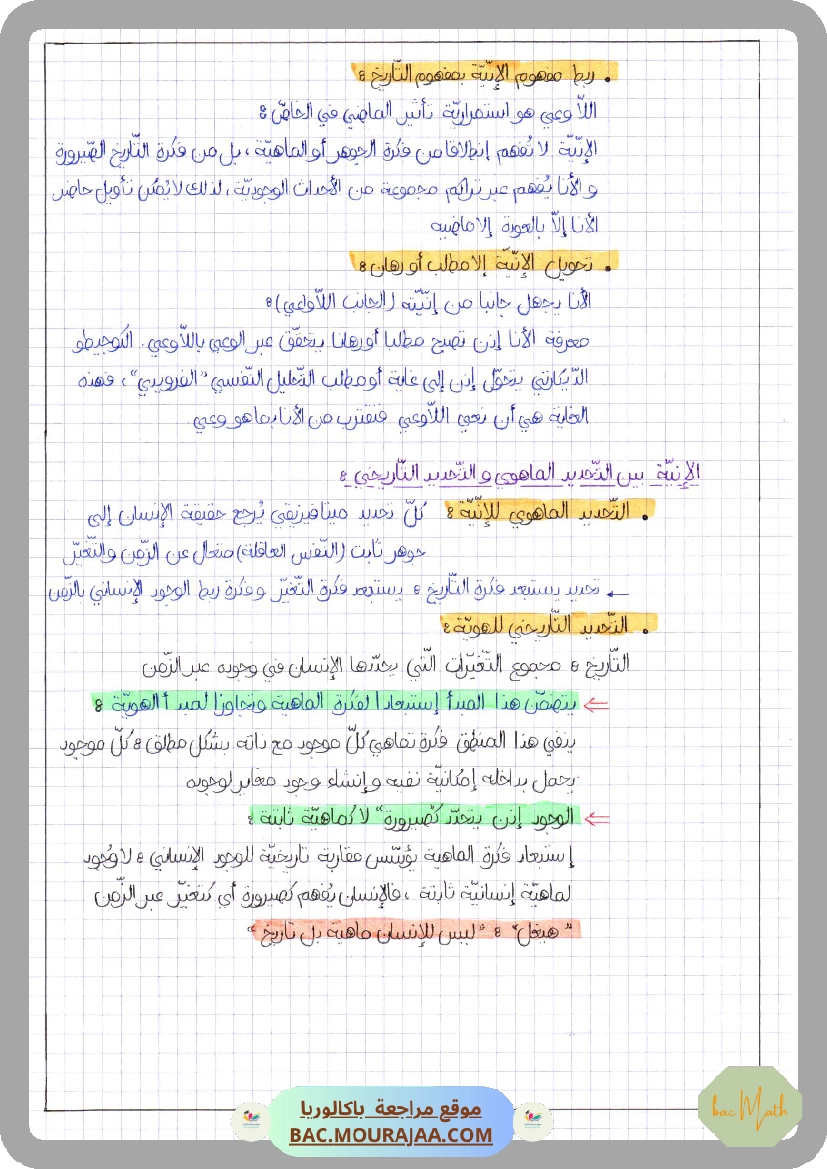 • ربط مفهوم الإنّيّة بمفهوم التّاريخ :
اللاّ وعي هو استمراريّة تأثير الماضي في الحاضر :
الإنّيّة لا تُفهم إنطلاقا من فكرة الجوهر أو الماهيّة ، بل من فكرة التّاريخ الصّيرورة
و الأنا يُفهم عبر تراكم مجموعة من الأحداث الوجوديّة ، لذلك لا يُمكن تأويل حاضر
الأنا إلاّ بالعودة إلا ماضيه
• تحويل الإنّيّة إلا مطلب أو رهان :
الأنا يجهل جانبا من إنّيّته (الجانب اللاّواعي) :
معرفة الأنا إذن تصبح مطلبا أو رهانا يتحقّق عبر الوعي باللاّوعي . الكوجيطو
الدّيكارتي يتحوّل إذن إلى غاية أو مطلب التّحليل النّفسي "الفرويدي" ، فهذه
الغاية هي أن نعي اللاّوعي فنقترب من الأنا بما هو وعي
الإنيّة بين التّحديد الماهوي و التّحديد التّاريخي :
• التّحديد الماهوي للإنّيّة : كلّ تحديد ميتافيزيقي يُرجع حقيقة الإنسان إلى
جوهر ثابت (النّفس العاقلة) متعال عن الزّمن والتّغيّر
← تحديد يستبعد فكرة التّاريخ : يستبعد فكرة التّغيّر و فكرة ربط الوجود الإنساني بالزّمن
• التّحديد التّاريخي للهويّة :
التّاريخ : مجموع التّغيّرات الّتي يحدثها الإنسان في وجوده عبر الزّمن
⇐ يتضمّن هذا المبدأ إستبعادا لفكرة الماهية وتجاوزا لمبدأ الهويّة :
ينفي هذا المنطق فكرة تماهي كلّ موجود مع ذاته بشكل مطلق : كلّ موجود
يحمل بداخله إمكانيّة نفيه و إنشاء وجود مغاير لوجوده
⇐ الوجود إذن يتحدّد كـ"صيرورة" لا كماهيّة ثابتة :
إستبعاد فكرة الماهية يؤسّس مقاربة تاريخيّة للوجود الإنساني : لا وُجود
لماهيّة إنسانيّة ثابتة ، فالإنسان يُفهم كصيرورة أي كتغيّر عبر الزّمن
"هيغل" : "ليس للإنسان ماهية بل تاريخ"
موقع مراجعة باكالوريا
BAC.MOURAJAA.COM
bac Math